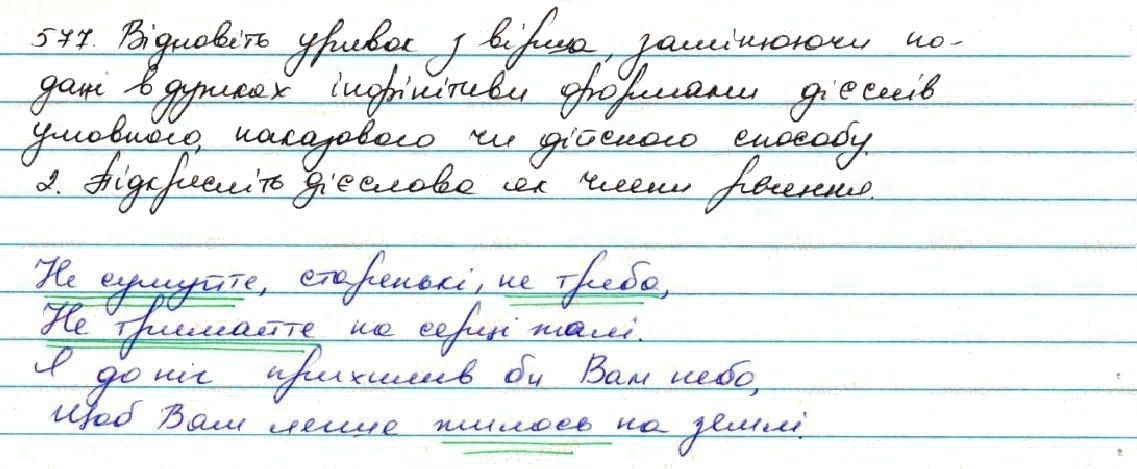 577. Відновіть уривок з вірша, замінюючи по-
дані в дужках інфінітиви формами дієслів
умовного, наказового чи дійсного способу.
2. Підкресліть дієслова як члени речення.
Не сумуйте, старенькі, не треба,
Не тримайте на серці жалі.
Я до ніг прихилив би Вам небо,
Щоб Вам легше жилось на землі.